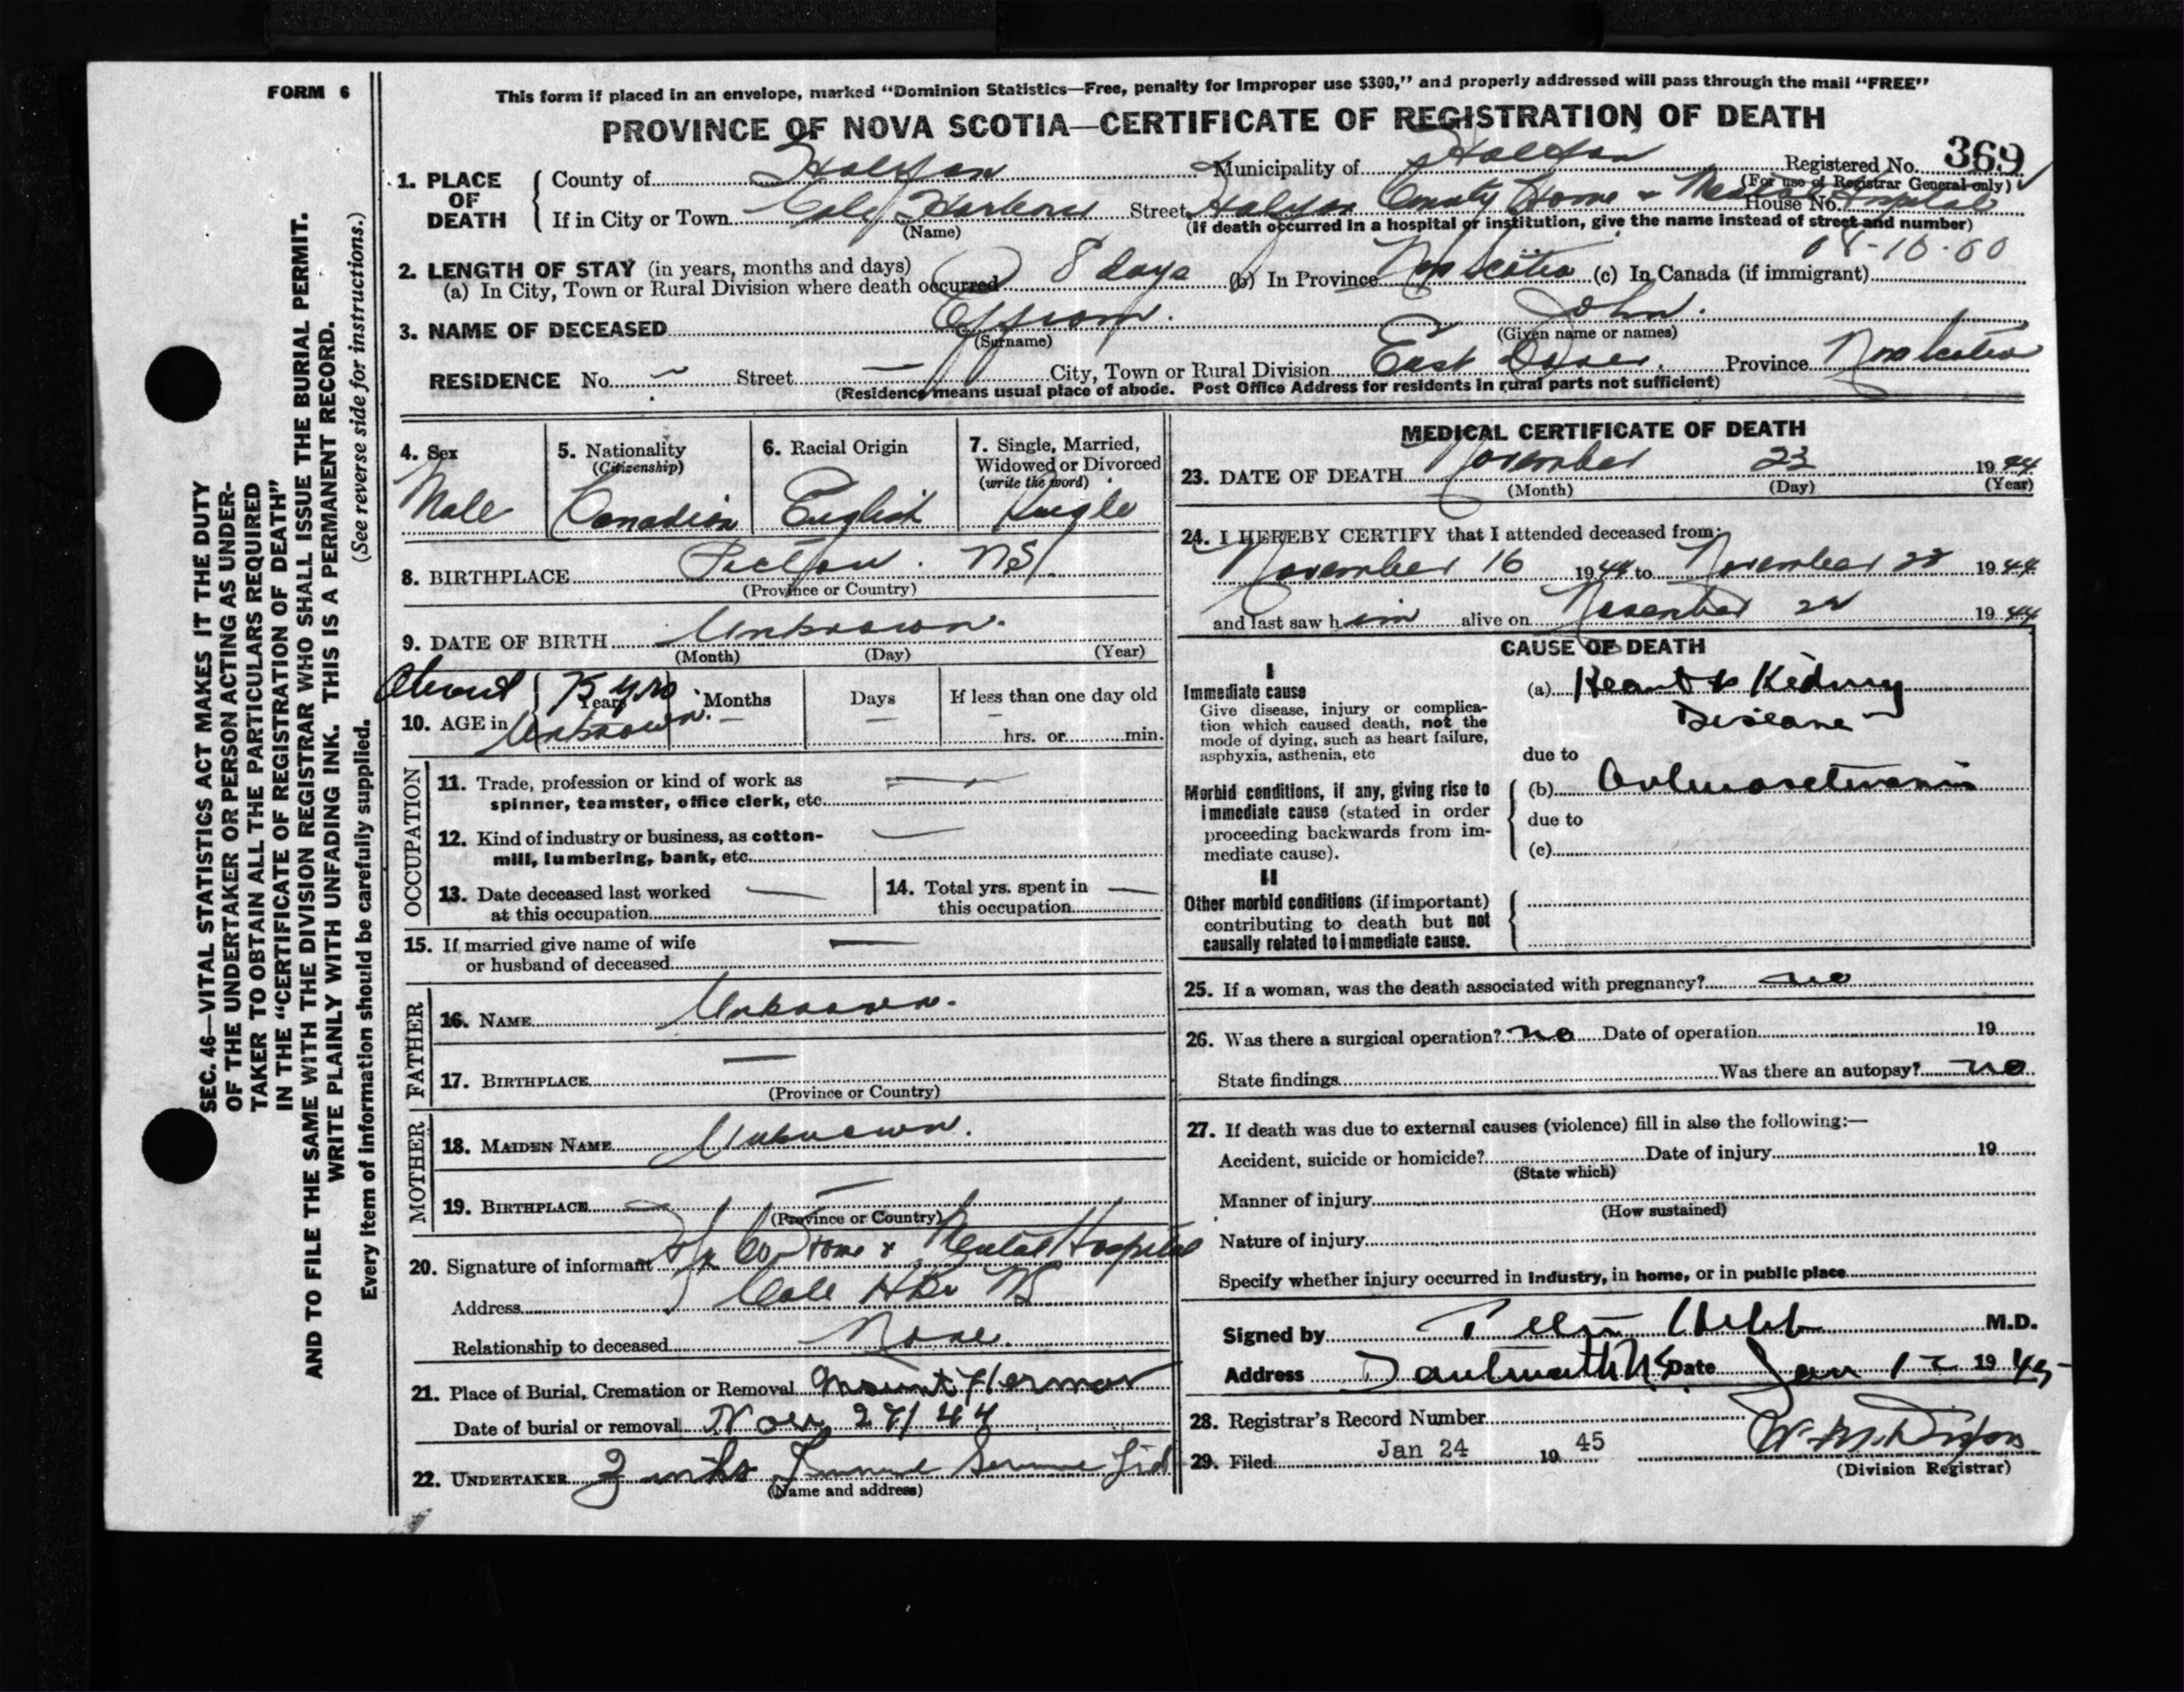 FORM 6
This form if placed in an envelope, marked “Dominion Statistics—Free, penalty for improper use $300,” and properly addressed will pass through the mail “FREE”
PROVINCE OF NOVA SCOTIA—CERTIFICATE OF REGISTRATION OF DEATH
Registered No. 369
(For use of Registrar General only)
1. PLACE OF DEATH
County of Halifax Municipality of Halifax
If in City or Town Cole Harbour Street Halifax County Home & Mental Hospital House No.
(Name) (If death occurred in a hospital or institution, give the name instead of street and number)
2. LENGTH OF STAY (in years, months and days)
(a) In City, Town or Rural Division where death occurred 8 days (b) In Province Nova Scotia (c) In Canada (if immigrant)
3. NAME OF DECEASED John.
(Surname) (Given name or names)
RESIDENCE No. — Street — City, Town or Rural Division East Province Nova Scotia
(Residence means usual place of abode. Post Office Address for residents in rural parts not sufficient)
4. Sex Male
5. Nationality (Citizenship) Canadian
6. Racial Origin English
7. Single, Married, Widowed or Divorced (write the word) Single
8. BIRTHPLACE Pictou. NS.
(Province or Country)
9. DATE OF BIRTH Unknown.
(Month) (Day) (Year)
About 75 yrs
10. AGE in Unknown. Years Months — Days — If less than one day old — hrs. or min.
OCCUPATION
11. Trade, profession or kind of work as spinner, teamster, office clerk, etc. —
12. Kind of industry or business, as cotton-mill, lumbering, bank, etc. —
13. Date deceased last worked at this occupation —
14. Total yrs. spent in this occupation —
15. If married give name of wife or husband of deceased —
FATHER
16. NAME Unknown.
17. BIRTHPLACE —
(Province or Country)
MOTHER
18. MAIDEN NAME Unknown.
19. BIRTHPLACE —
(Province or Country)
20. Signature of informant Hfx Co Home & Mental Hospital
Address Cole Hbr NS
Relationship to deceased None.
21. Place of Burial, Cremation or Removal Mount Hermon
Date of burial or removal Nov 27/44
22. UNDERTAKER Service Ltd
(Name and address)
MEDICAL CERTIFICATE OF DEATH
23. DATE OF DEATH November 23 1944
(Month) (Day) (Year)
24. I HEREBY CERTIFY that I attended deceased from:
November 16 1944 to November 22 1944
and last saw him alive on November 22 1944
CAUSE OF DEATH
I
Immediate cause
Give disease, injury or complication which caused death, not the mode of dying, such as heart failure, asphyxia, asthenia, etc
(a) Heart & Kidney
Disease
due to
Morbid conditions, if any, giving rise to immediate cause (stated in order proceeding backwards from immediate cause).
(b)
due to
(c)
II
Other morbid conditions (if important) contributing to death but not causally related to immediate cause.
25. If a woman, was the death associated with pregnancy? no
26. Was there a surgical operation? no Date of operation 19
State findings Was there an autopsy? no
27. If death was due to external causes (violence) fill in also the following:—
Accident, suicide or homicide? Date of injury 19
(State which)
Manner of injury
(How sustained)
Nature of injury
Specify whether injury occurred in industry, in home, or in public place
Signed by M.D.
Address Dartmouth NS Date Jan 12 1945
28. Registrar's Record Number
29. Filed Jan 24 1945
(Division Registrar)
SEC. 46—VITAL STATISTICS ACT MAKES IT THE DUTY
OF THE UNDERTAKER OR PERSON ACTING AS UNDER-
TAKER TO OBTAIN ALL THE PARTICULARS REQUIRED
IN THE “CERTIFICATE OF REGISTRATION OF DEATH”
AND TO FILE THE SAME WITH THE DIVISION REGISTRAR WHO SHALL ISSUE THE BURIAL PERMIT.
WRITE PLAINLY WITH UNFADING INK. THIS IS A PERMANENT RECORD.
Every item of information should be carefully supplied. (See reverse side for instructions.)